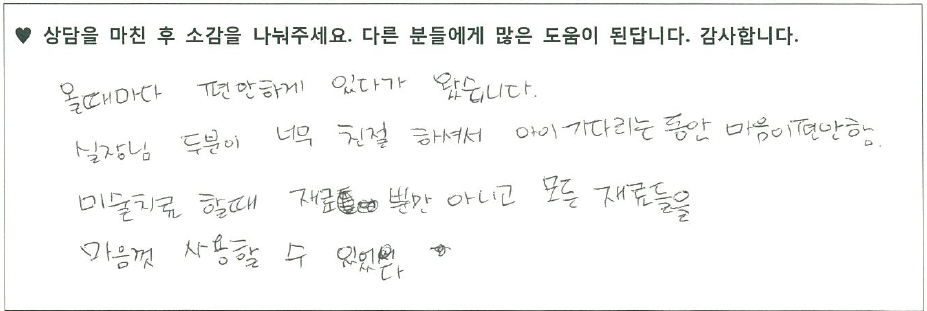 ♥ 상담을 마친 후 소감을 나눠주세요. 다른 분들에게 많은 도움이 된답니다. 감사합니다.
올때마다 편안하게 있다가 왔습니다.
실장님 두분이 너무 친절 하셔서 아이 기다리는 동안 마음이편안함.
미술치료 할때 재료 뿐만 아니고 모든 재료들을
마음껏 사용할 수 있었다